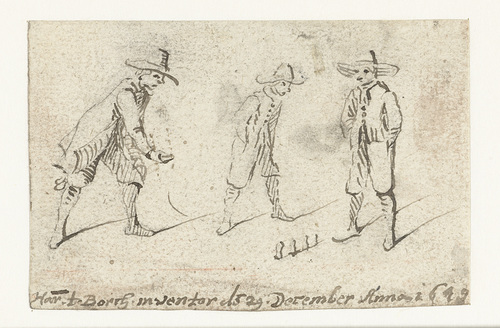 Har. t. Borch. inventor de 29. December Anno. 164